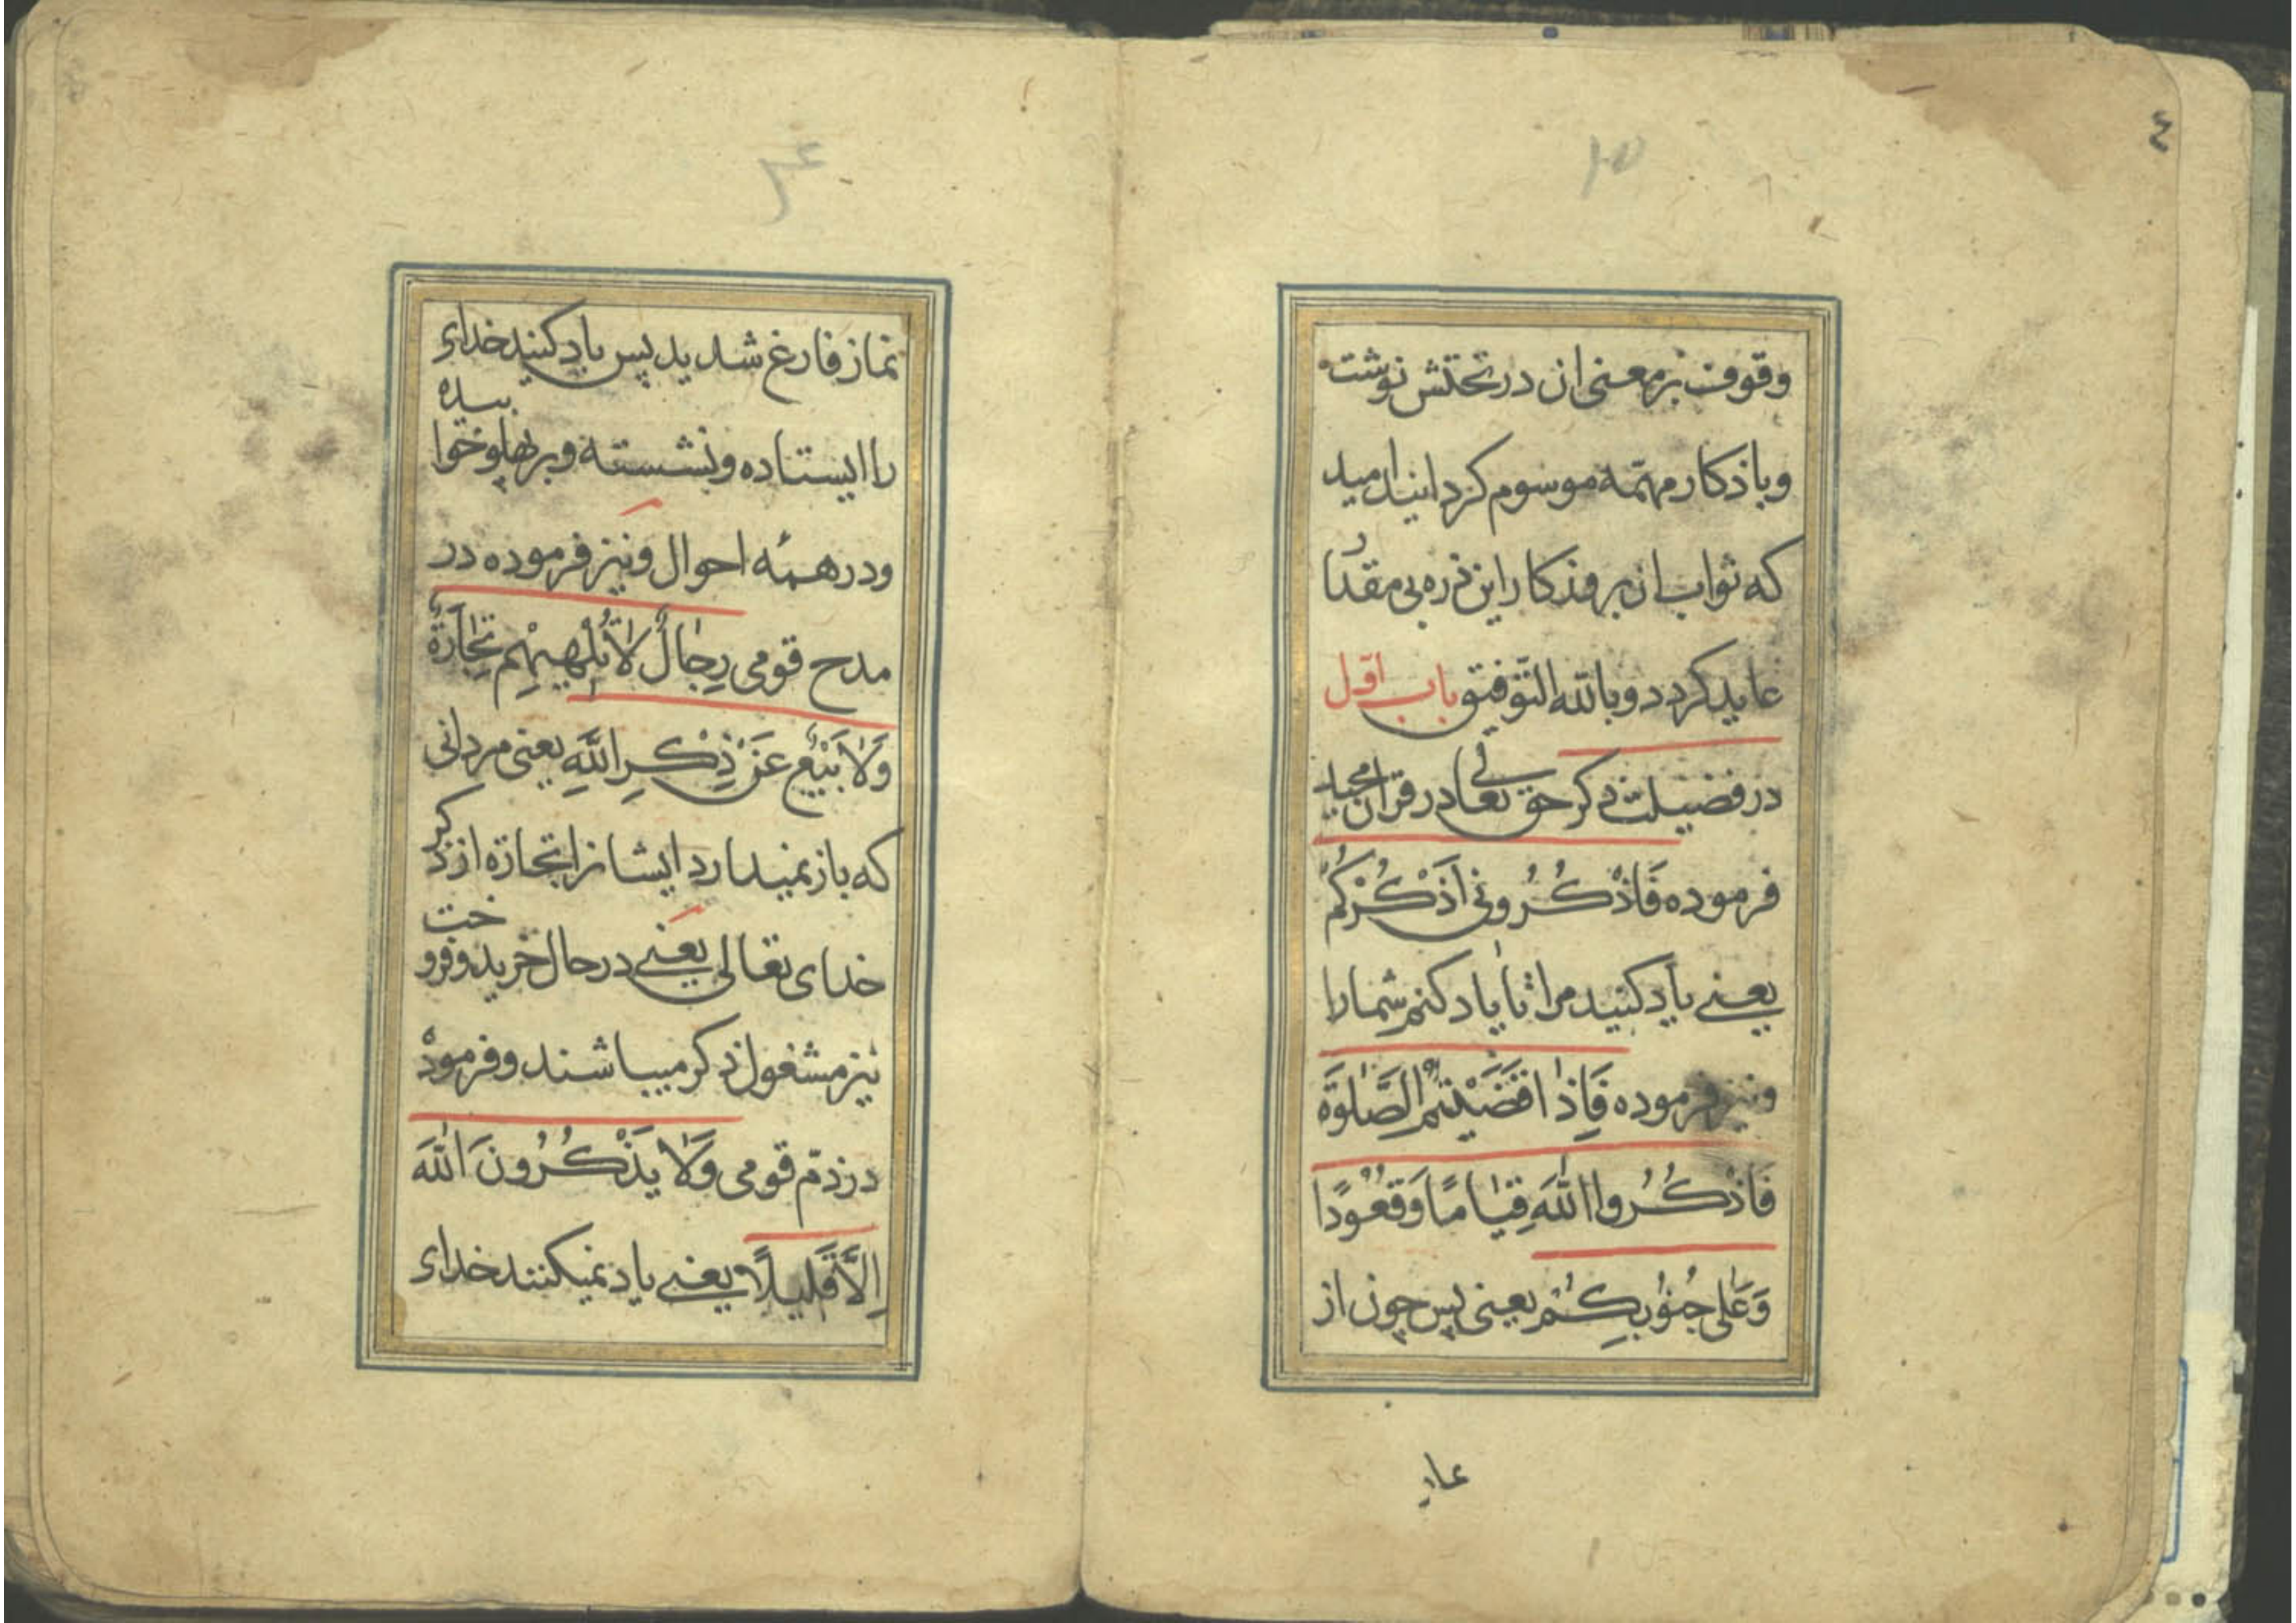 ٤
وقوف بر معنی ان در تحتش نوشت
وباذکار مهمّه موسوم کردانید امید
که ثواب ان بروزکار این ذره بی مقدار
عاید کردد وبالله التوفیق باب اوّل
در فضیلت ذکر حق تعالی در قران مجید
فرموده فَاذْکُرُونی اَذْکُرْکُمْ
یعنی یاد کنید مرا تا یاد کنم شمارا
ونیز فرموده فَاِذا قَضَیْتُمُ الصَّلٰوةَ
فَاذْکُرُوا اللّٰهَ قِیٰامًا وَقُعُودًا
وَعَلٰی جُنُوبِکُمْ یعنی پس چون از
نماز فارغ شدید پس یاد کنید خدای
را ایستاده ونشسته وبر پهلو خوابیده
ودر همه احوال ونیز فرموده در
مدح قومی رِجٰالٌ لاٰ تُلْهیهِمْ تِجٰارَةٌ
وَلاٰ بَیْعٌ عَنْ ذِکْرِ اللّٰهِ یعنی مردانی
که باز نمیدارد ایشانرا تجارة از ذکر
خدای تعالی یعنی در حال خرید وفروخت
نیز مشغول ذکر میباشند وفرموده
در ذمّ قومی وَلاٰ یَذْکُرُونَ اللّٰهَ
اِلاّٰ قَلیلاً یعنی یاد نمیکنند خدای